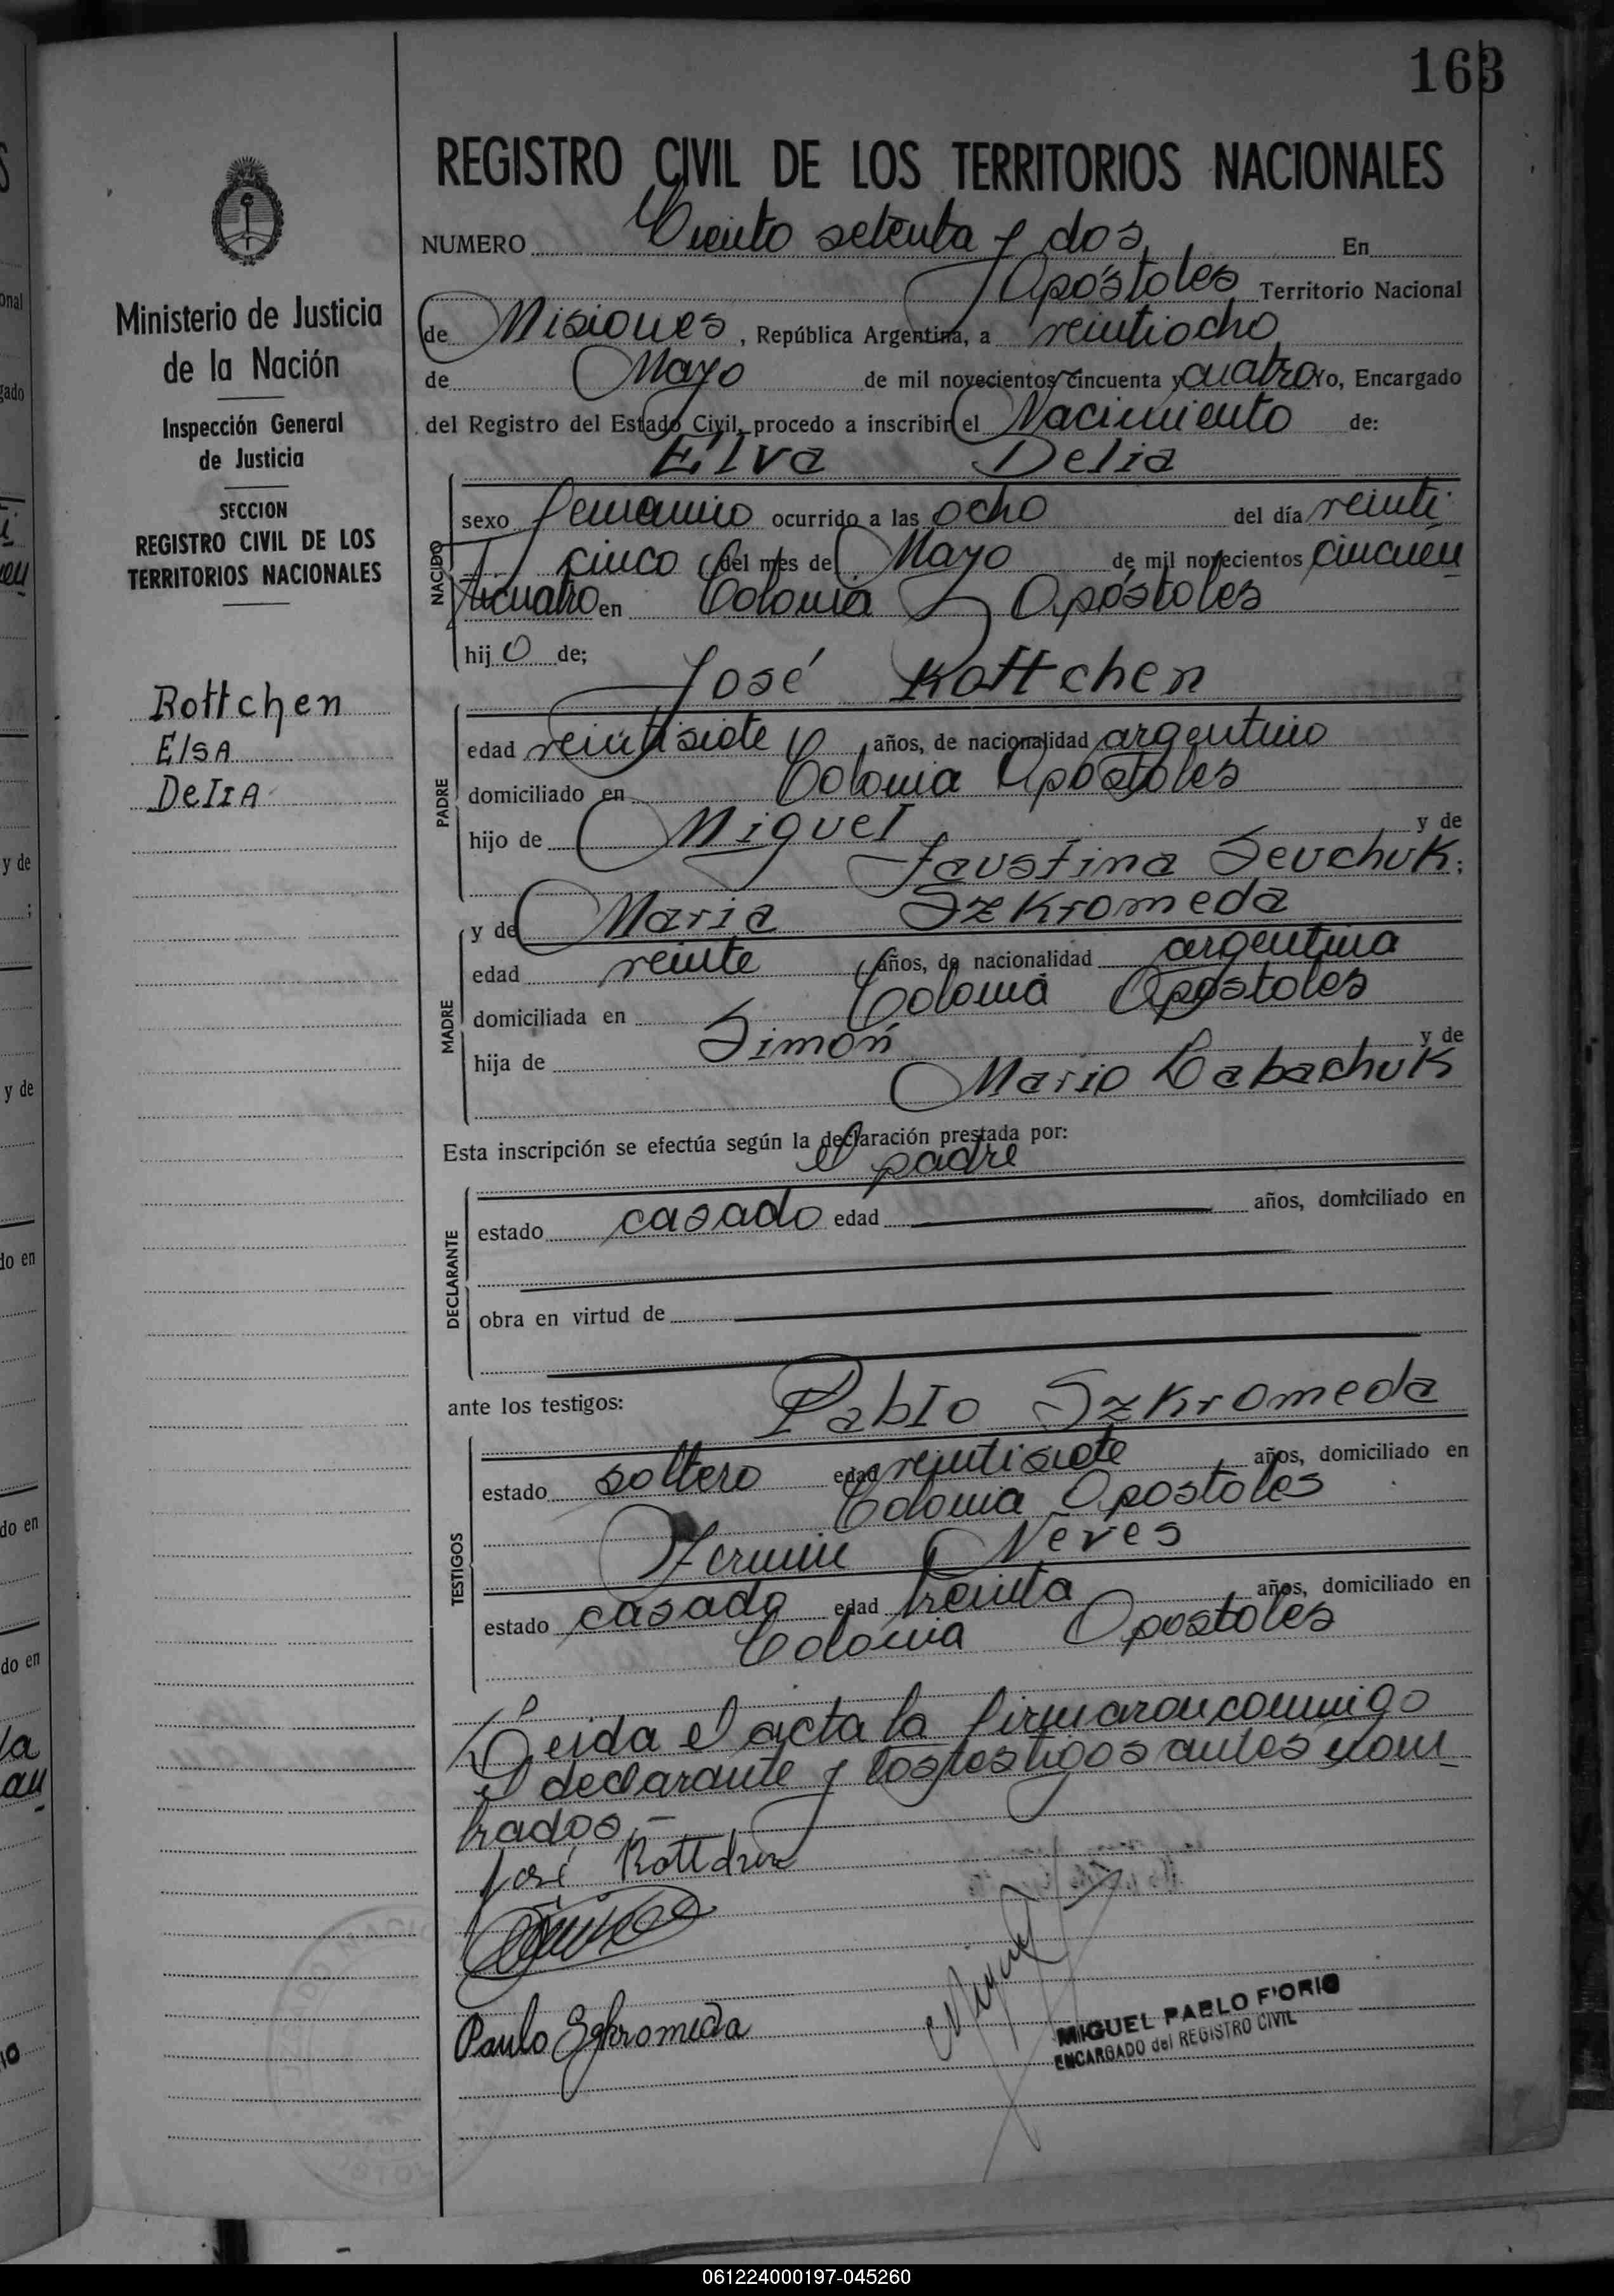 163
REGISTRO CIVIL DE LOS TERRITORIOS NACIONALES
NUMERO Ciento setenta y dos En
Apóstoles Territorio Nacional
de Misiones, República Argentina, a veintiocho
de Mayo de mil novecientos cincuenta y cuatro Yo, Encargado
del Registro del Estado Civil, procedo a inscribir el Nacimiento de:
Elva Delia
NACIDO
sexo femenino ocurrido a las ocho del día veinti
cinco del mes de Mayo de mil novecientos cincuen
ticuatro en Colonia Apóstoles
hijo de;
José Rottchen
PADRE
edad veintisiete años, de nacionalidad argentino
domiciliado en Colonia Apóstoles
hijo de Miguel y de
Faustina Sevchuk;
y de Maria Szkromeda
MADRE
edad veinte años, de nacionalidad argentina
domiciliada en Colonia Apostoles
hija de Simón y de
Mario Labachuk
Esta inscripción se efectúa según la declaración prestada por:
el padre
DECLARANTE
estado casado edad años, domiciliado en
obra en virtud de
ante los testigos: Pablo Szkromeda
TESTIGOS
estado soltero edad veintisiete años, domiciliado en
Colonia Apostoles
Fermin Neves
estado casado edad treinta años, domiciliado en
Colonia Apostoles
Leida el acta la firmaron conmigo
el declarante y los testigos antes nom
brados.-
José Rottchen
Paulo Szkromeda
MIGUEL PABLO F'ORIO
ENCARGADO del REGISTRO CIVIL
Ministerio de Justicia
de la Nación
Inspección General
de Justicia
SECCION
REGISTRO CIVIL DE LOS
TERRITORIOS NACIONALES
Rottchen
Elsa
Delia
061224000197-045260